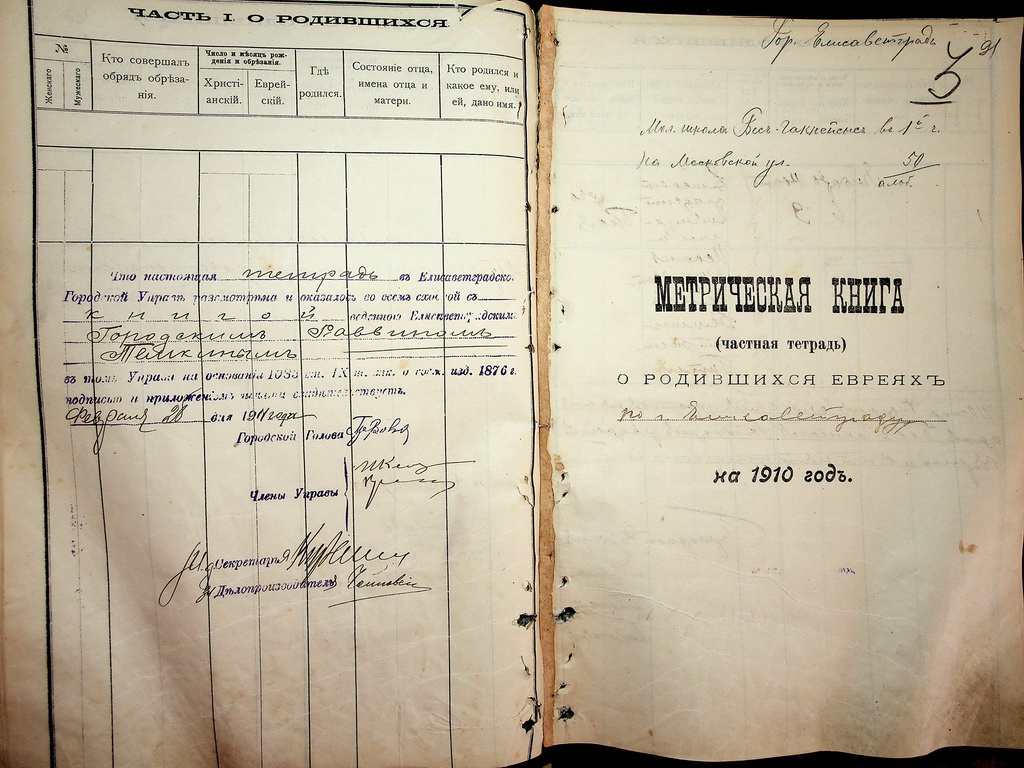 ЧАСТЬ I. О РОДИВШИХСЯ.
№
Женскаго
Мужескаго
Кто совершалъ обрядъ обрѣзанія.
Число и мѣсяцъ рожденія и обрѣзанія.
Христіанскій.
Еврейскій.
Гдѣ родился.
Состояніе отца, имена отца и матери.
Кто родился и какое ему, или ей, дано имя.
Что настоящая тетрадь въ Елисаветградско.
Городской Управѣ разсмотрѣна и оказалось во всемъ сходной съ
книгой веденною Елисаветградскимъ
Городскимъ Раввиномъ
Темкинымъ
въ томъ Управа на основаніи 1083 ст. IX т. зак. о сост. изд. 1876 г.
подписью и приложеніемъ печати свидѣтельствуетъ.
Февраля 28 дня 1911 года
Городской Голова
Члены Управы
И. д. Секретаря
Дѣлопроизводитель
Гор. Елисаветградъ 91
3
Мол. школа въ 1й г.
на Московской ул. 50
МЕТРИЧЕСКАЯ КНИГА
(частная тетрадь)
О РОДИВШИХСЯ ЕВРЕЯХЪ
по г. Елисаветграду
на 1910 годъ.